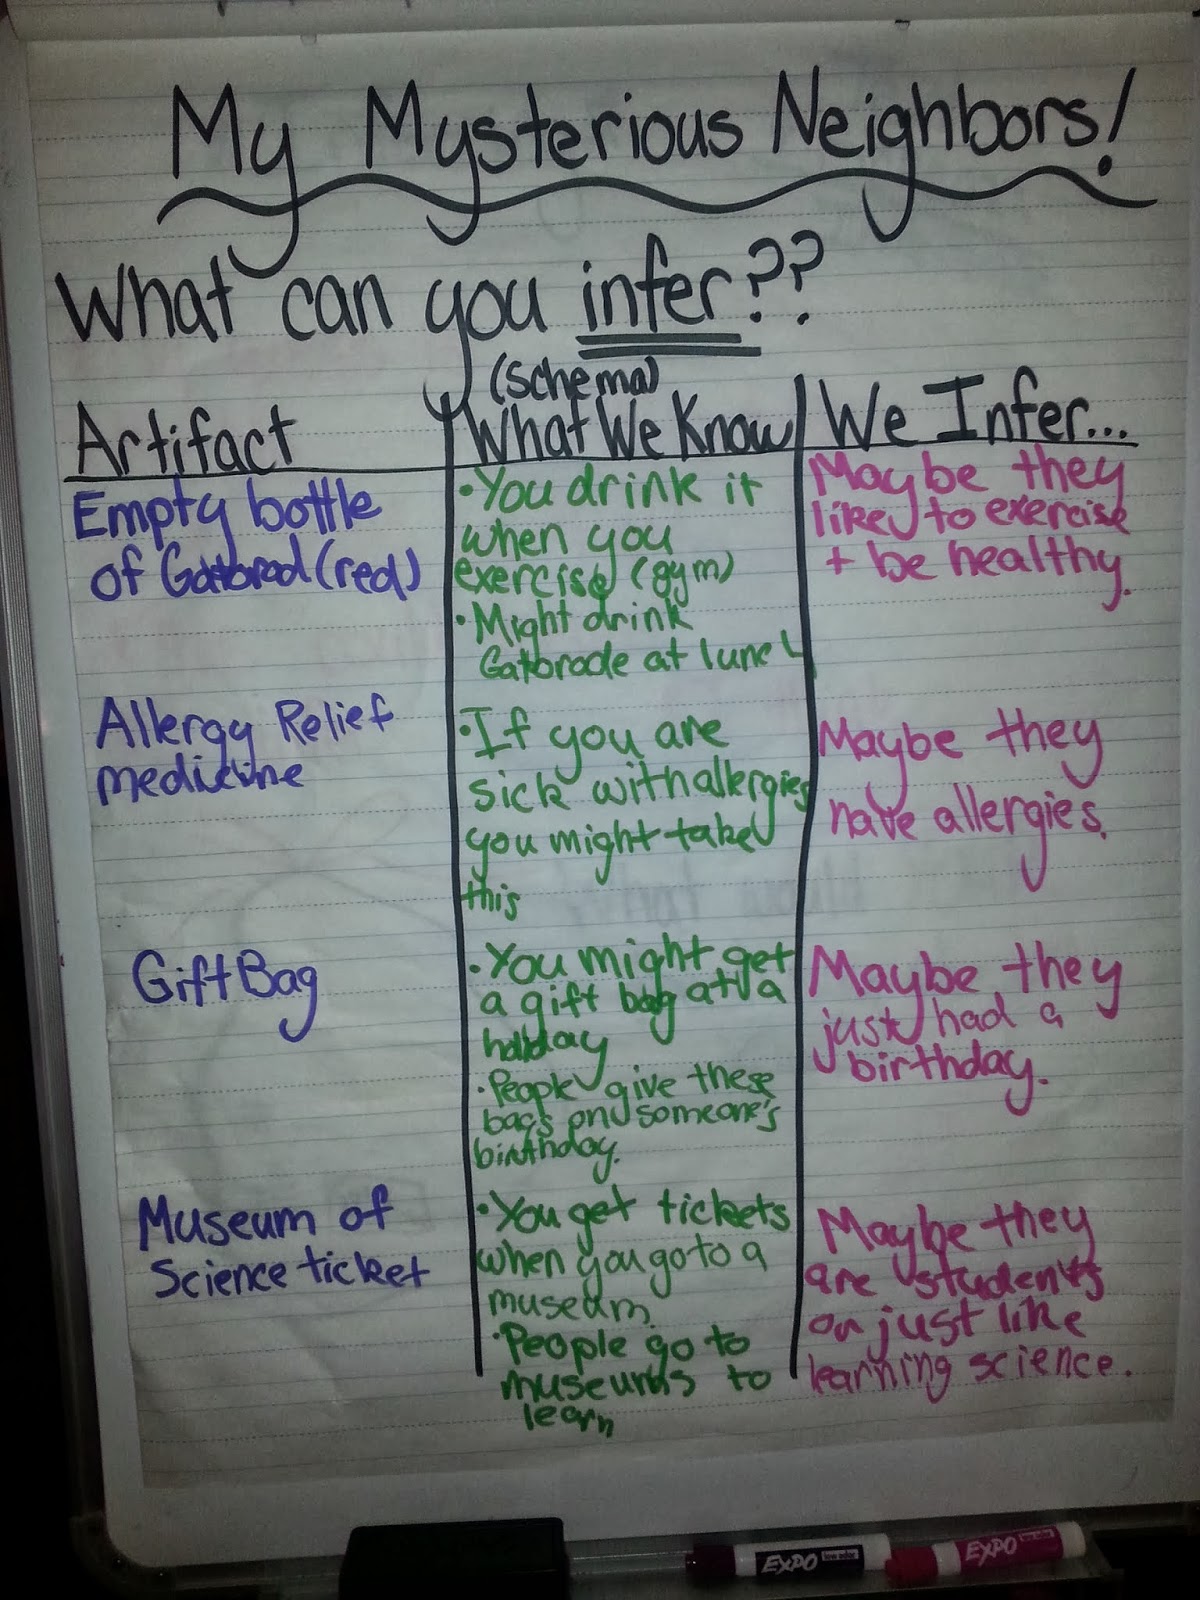 My Mysterious Neighbors!
What can you infer??
Artifact
(schema)
What We Know
We Infer...
Empty bottle
of Gatorad (red)
• You drink it
when you
exercise (gym)
• Might drink
Gatorade at lunch
Maybe they
like to exercise
+ be healthy.
Allergy Relief
medicine
• If you are
sick with allergies
you might take
this
Maybe they
have allergies.
Gift Bag
• You might get
a gift bag at a
holiday
• People give these
bags on someone's
birthday.
Maybe they
just had a
birthday.
Museum of
Science ticket
• You get tickets
when you go to a
museum.
• People go to
museums to
learn
Maybe they
are students
or just like
learning science.
EXPO
low odor
EXPO